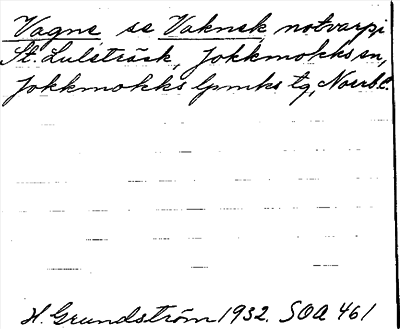 Vagne se Vaknek notvarp i
St. Lulsträsk, Jokkmokks sn,
Jokkmokks lpmks tg, Norrb.l.
H. Grundström 1932. SOA 461